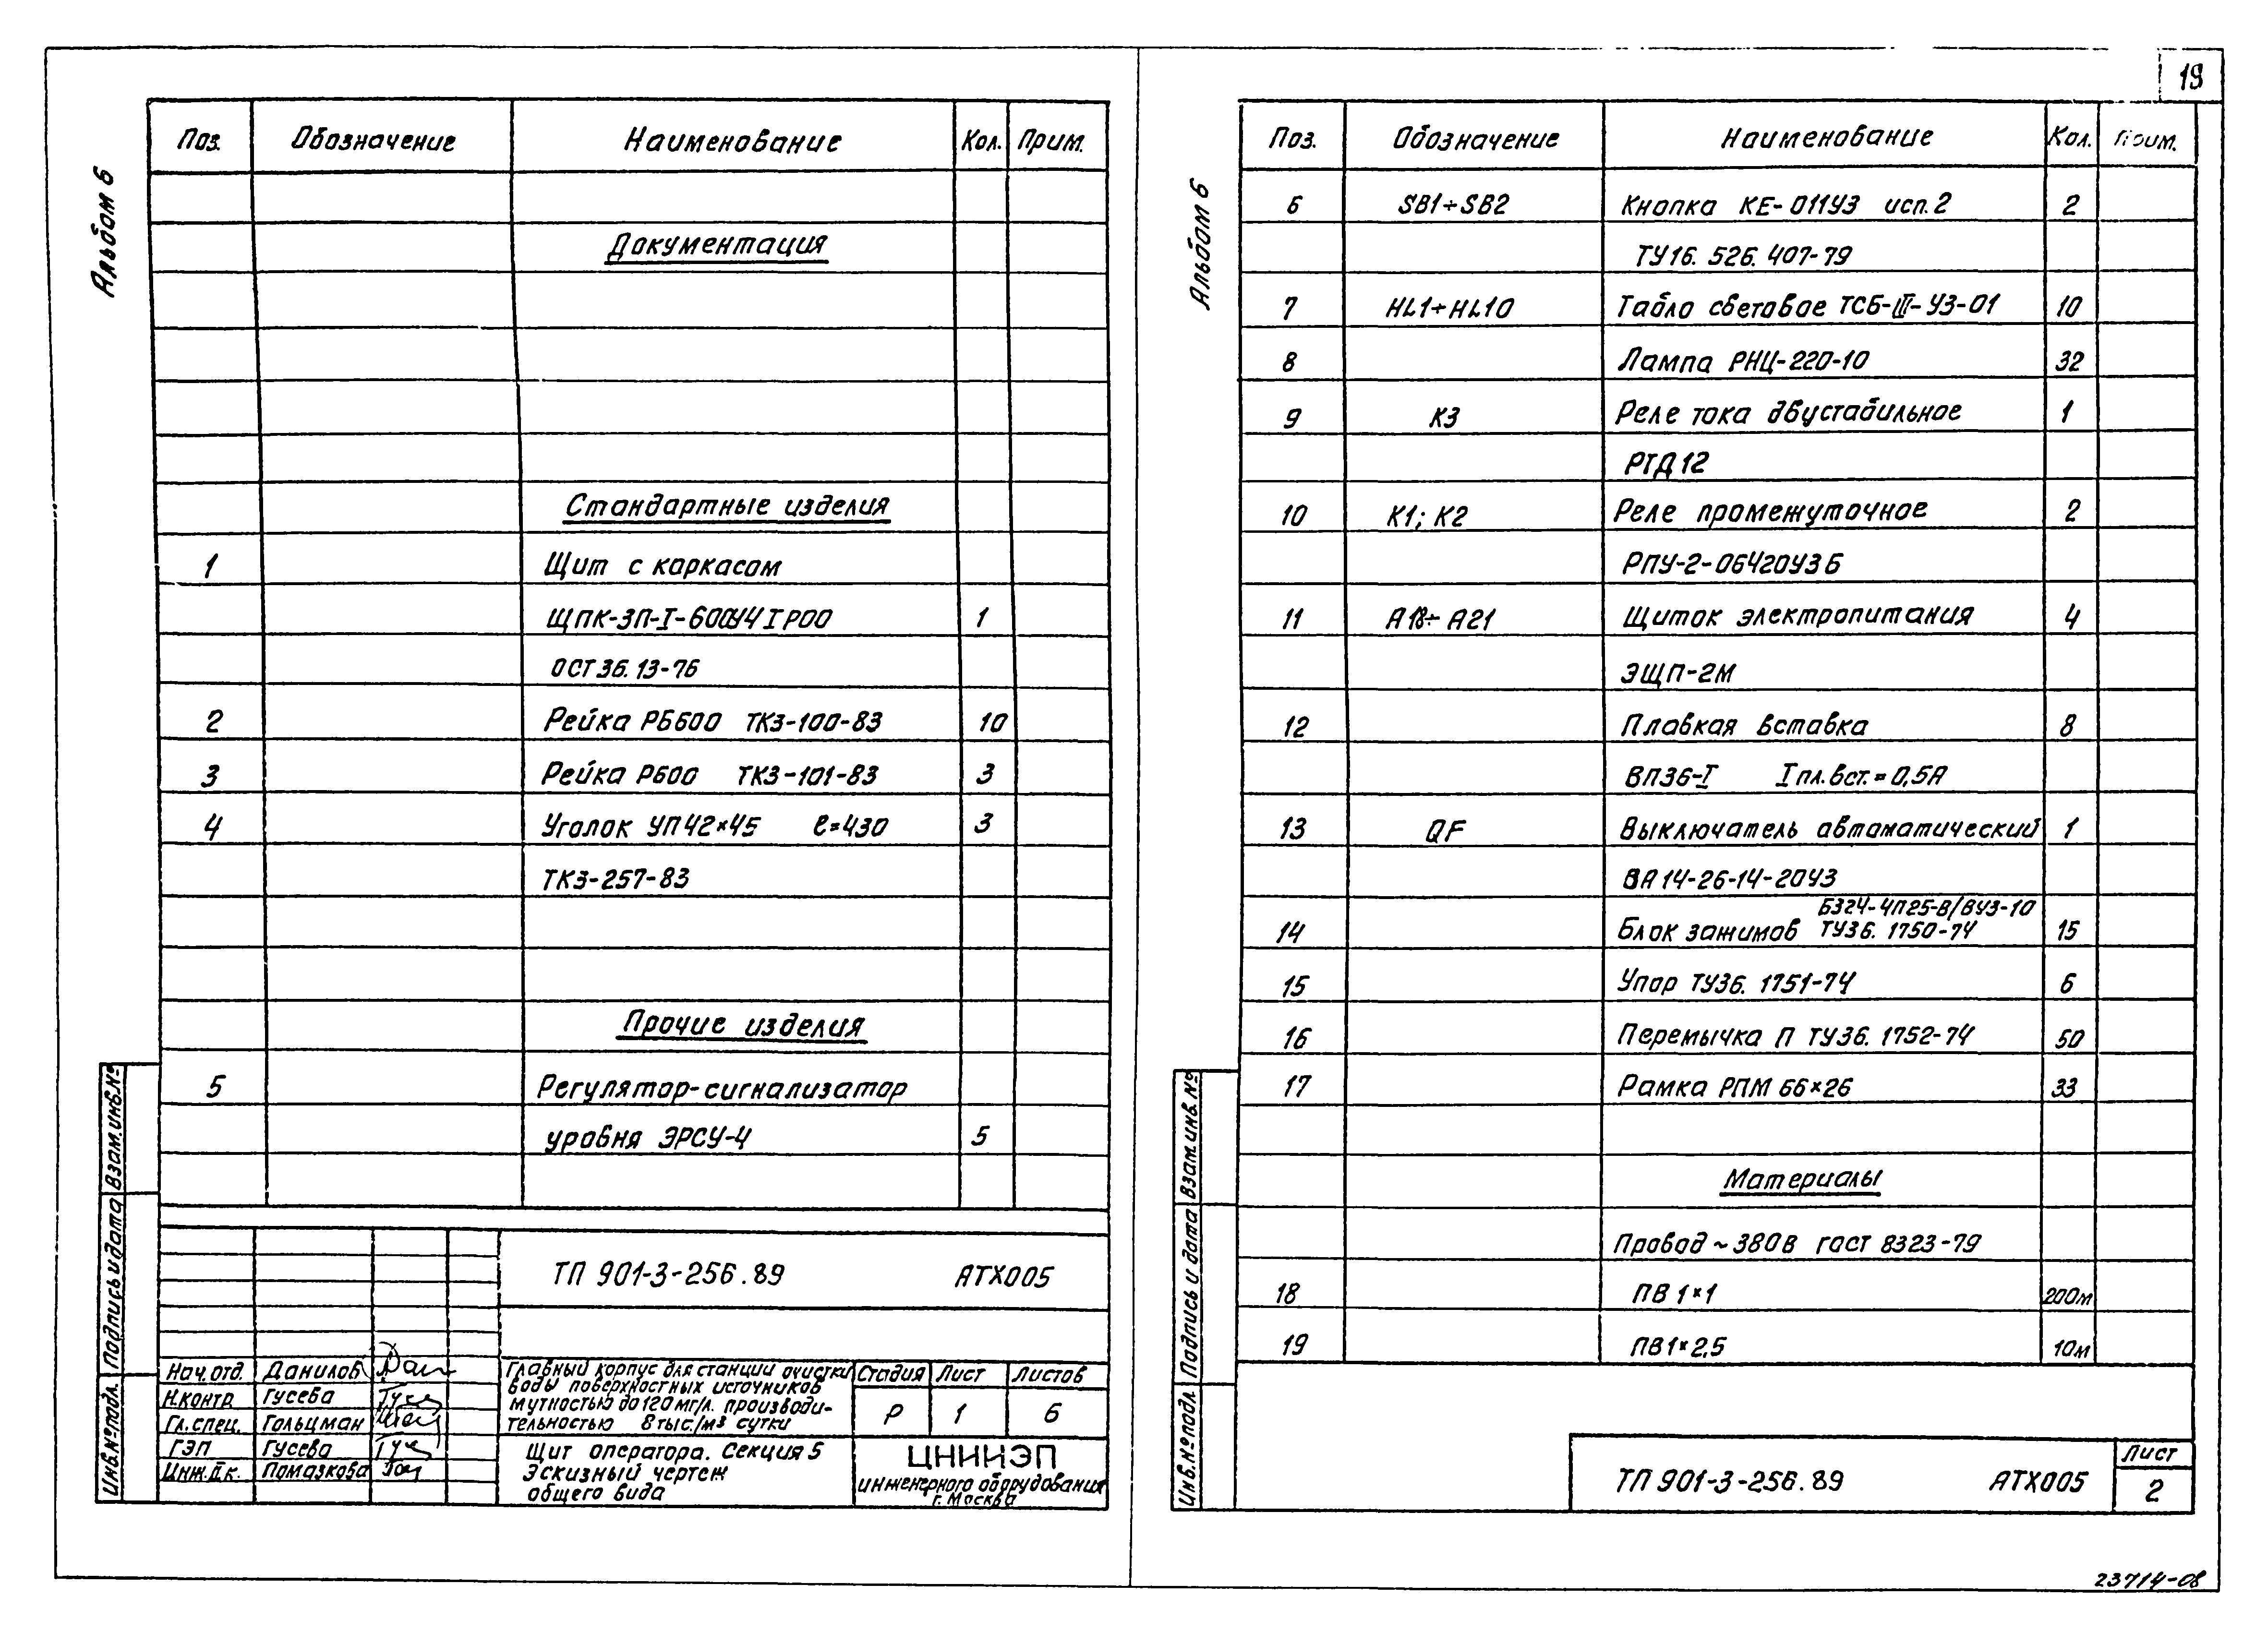 19
Альбом 6
Поз. Обозначение Наименование Кол. Прим.
Документация
Стандартные изделия
1 Щит с каркасом
ЩПК-ЗП-I-600У4 IP00 1
ОСТ 36.13-76
2 Рейка РБ600 ТК3-100-83 10
3 Рейка Р600 ТК3-101-83 3
4 Уголок УП42×45 ℓ=430 3
ТК3-257-83
Прочие изделия
5 Регулятор-сигнализатор
уровня ЭРСУ-4 5
ТП 901-3-256.89 АТХ005
Нач.отд. Данилов
Н.контр. Гусева
Гл.спец. Гольцман
ГЭП Гусева
Инж.IIк. Помазкова
Главный корпус для станции очистки
воды поверхностных источников
мутностью до 120 мг/л. производи-
тельностью 8 тыс./м3 сутки
Щит оператора. Секция 5
Эскизный чертеж
общего вида
Стадия Лист Листов
Р 1 6
ЦНИИЭП
инженерного оборудования
г. Москва
Взам.инв.№
Подпись и дата
Инв.№подл.
Альбом 6
Поз. Обозначение Наименование Кол. Прим.
6 SB1÷SB2 Кнопка КЕ-011У3 исп.2 2
ТУ16.526.407-79
7 HL1÷HL10 Табло световое ТСБ-III-У3-01 10
8 Лампа РНЦ-220-10 32
9 К3 Реле тока двустабильное 1
РТД12
10 К1; К2 Реле промежуточное 2
РПУ-2-06420У3Б
11 А18÷А21 Щиток электропитания 4
ЭЩП-2М
12 Плавкая вставка 8
ВП3Б-I I пл.вст.=0,5А
13 QF Выключатель автоматический 1
ВА14-26-14-20У3
БЗ24-4П25-В/ВУ3-10
14 Блок зажимов ТУ36.1750-74 15
15 Упор ТУ36.1751-74 6
16 Перемычка П ТУ36.1752-74 50
17 Рамка РПМ 66×26 33
Материалы
Провод ~380В гост 8323-79
18 ПВ 1×1 200м
19 ПВ1×2,5 10м
ТП 901-3-256.89 АТХ005
Лист
2
Взам.инв.№
Подпись и дата
Инв.№подл.
23714-08